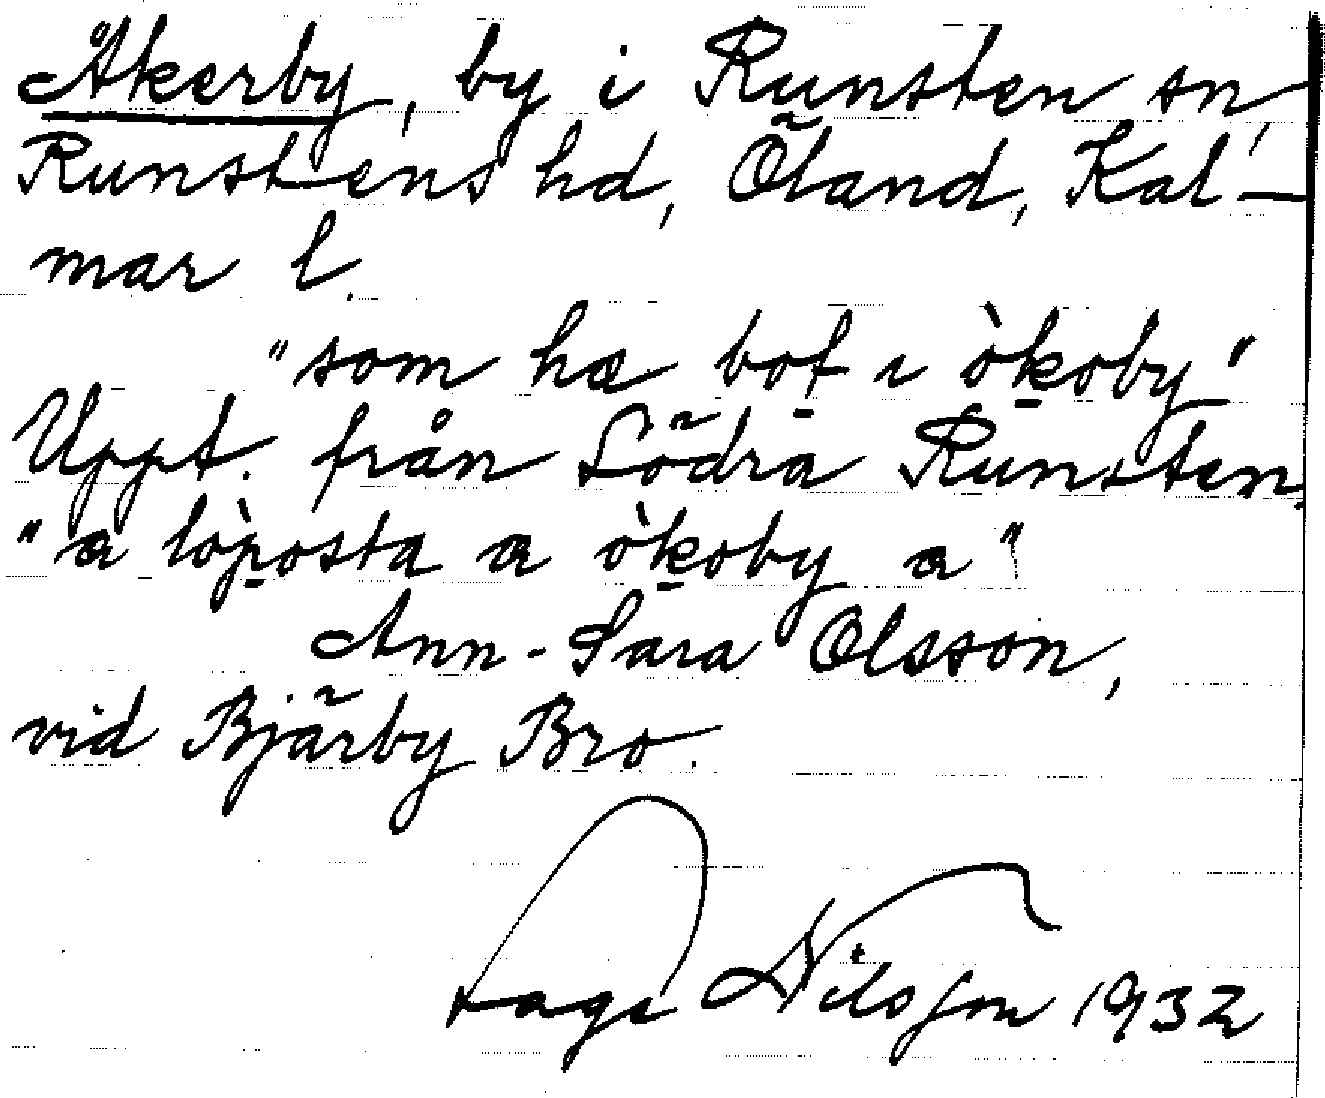 Åkerby, by i Runsten sn,
Runstens hd, Öland, Kal-
mar l.
"som hæ bot i òkoby"
Uppt. från Södra Runsten.
"a lòposta a òkoby a"
Ann-Sara Olsson,
vid Bjärby Bro.
Tage Nilsson 1932